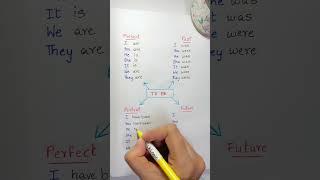 Present
I am
You are
He is
She is
It is
We are
They are
Past
I was
You were
He was
She was
It was
We were
They were
TO BE
Perfect
I have been
You have been
He
She
It
Future
I
You
It is
We are
They are
Perfect
I have
was
were
were
Future